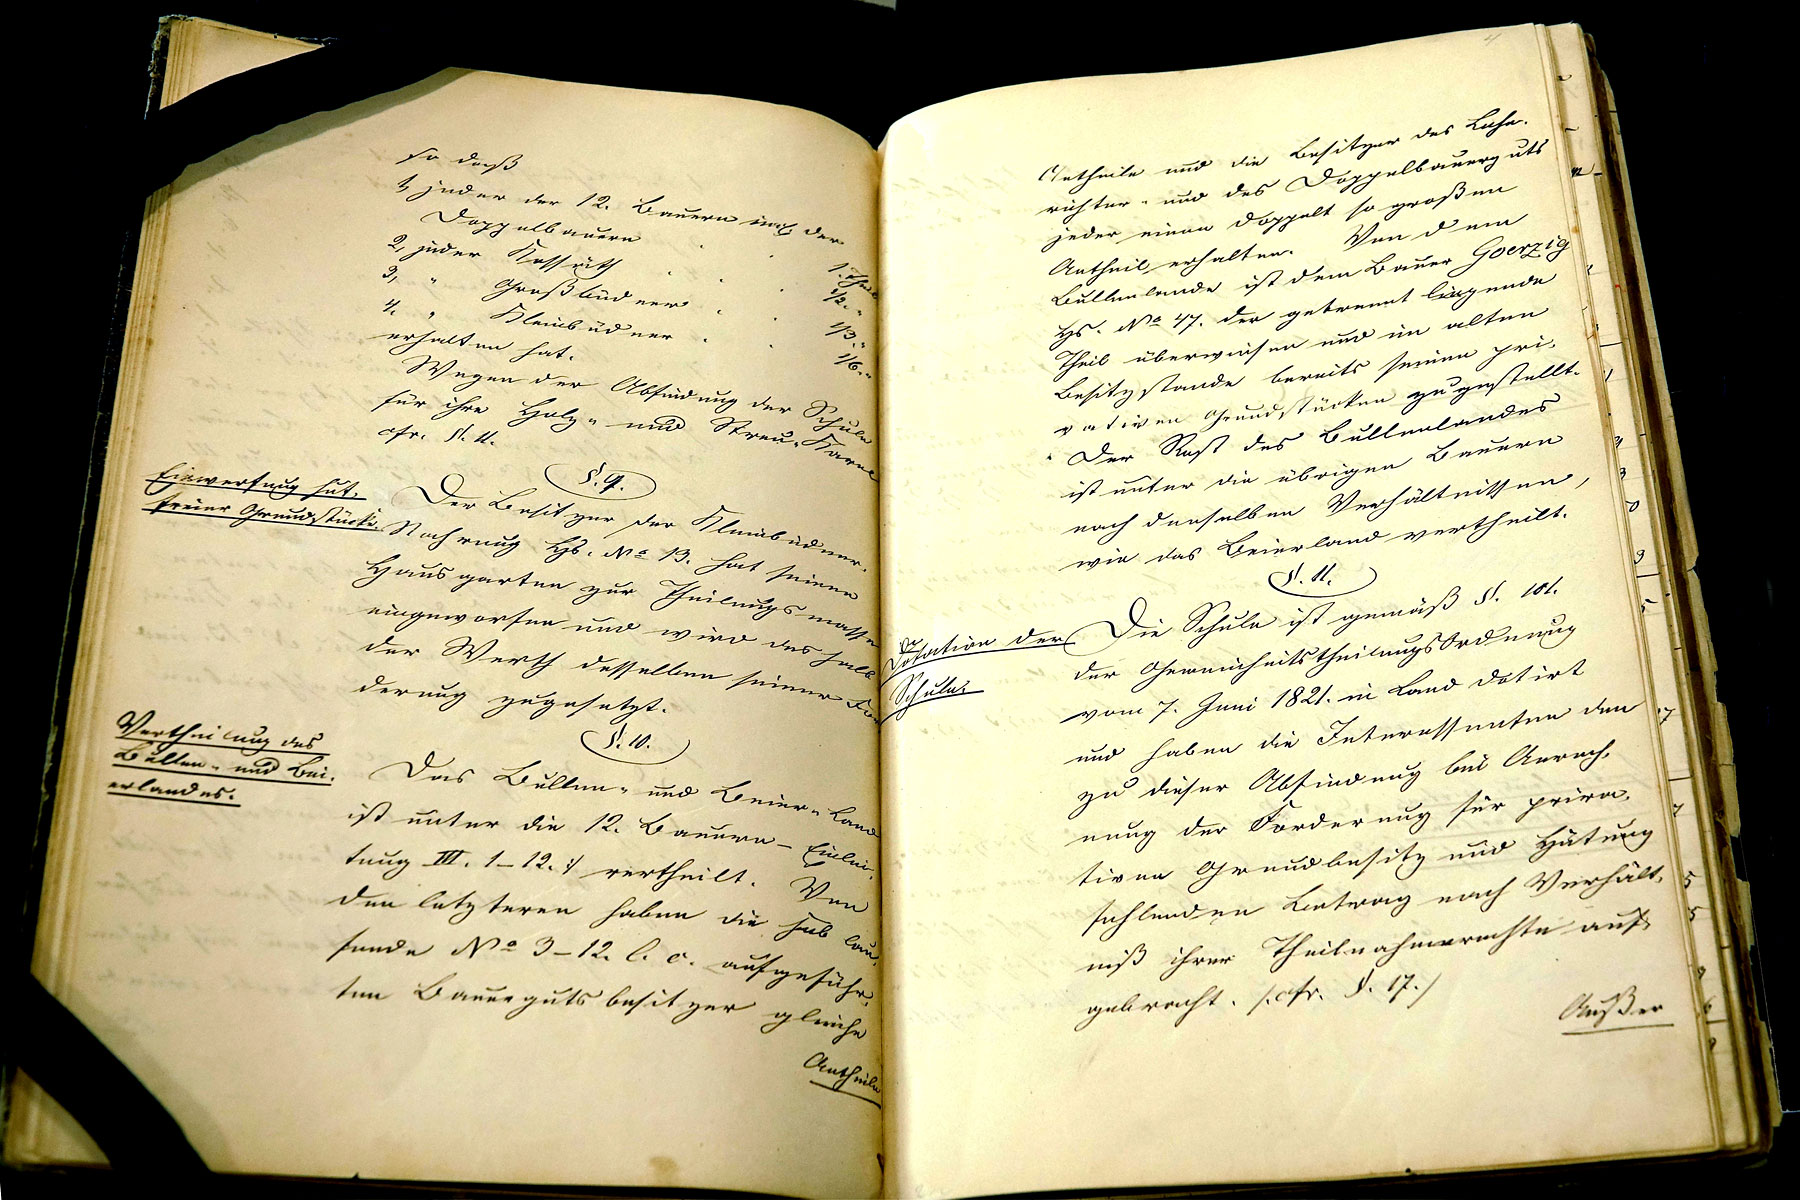 so daß
1, jeder der 12. Bauern incl. der
Doppelbauern 1. Theil
2, jeder Kossäth 1/2. "
3, " Großbüdner 1/3. "
4. " Kleinbüdner 1/6. "
erhalten hat.
Wegen der Abfindung der Schule
für ihre Holz- und Streu-Kavel
cfr. §. 11.
§. 9.
Einwerfung hut-
freier Grundstücke.
Der Besitzer der Kleinbüdner-
Nahrung Hs. No 13. hat seinen
Hausgarten zur Theilungsmasse
eingeworfen und wird deshalb
der Werth desselben seiner For
derung zugesetzt.
§. 10.
Vertheilung des
Bullen- und Bei-
erlandes.
Das Bullen- und Beier-Land
ist unter die 12. Bauern - Einlei-
tung III. 1-12. :/ vertheilt. Von
den letzteren haben die sub lau-
fende No 3-12. l. c. aufgeführ-
ten Bauergutsbesitzer gleiche
Antheile
4
Antheile und die Besitzer des Lehn-
richter- und des Doppelbauerguts
jeder einen doppelt so großen
Antheil erhalten. Von dem
Bullenlande ist dem Bauer Goerzig
Hs. No 47. der getrennt liegende
Theil überwiesen und im alten
Besitzstande bereits seinen pri-
vativen Grundstücken zugestellt.
Der Rest des Bullenlandes
ist unter die übrigen Bauern
nach denselben Verhältnissen,
wie das Beierland vertheilt.
§. 11.
Dotation der
Schule.
Die Schule ist gemäß §. 101.
der Gemeinheitstheilungsordnung
vom 7. Juni 1821. in Land dotirt
und haben die Interessenten den
zu dieser Abfindung bei Anrech-
nung der Forderung für priva-
tiven Grundbesitz und Hütung
fehlenden Betrag nach Verhält-
niß ihrer Theilnahmerechte auf-
gebracht. /. cfr. §. 17./
Außer